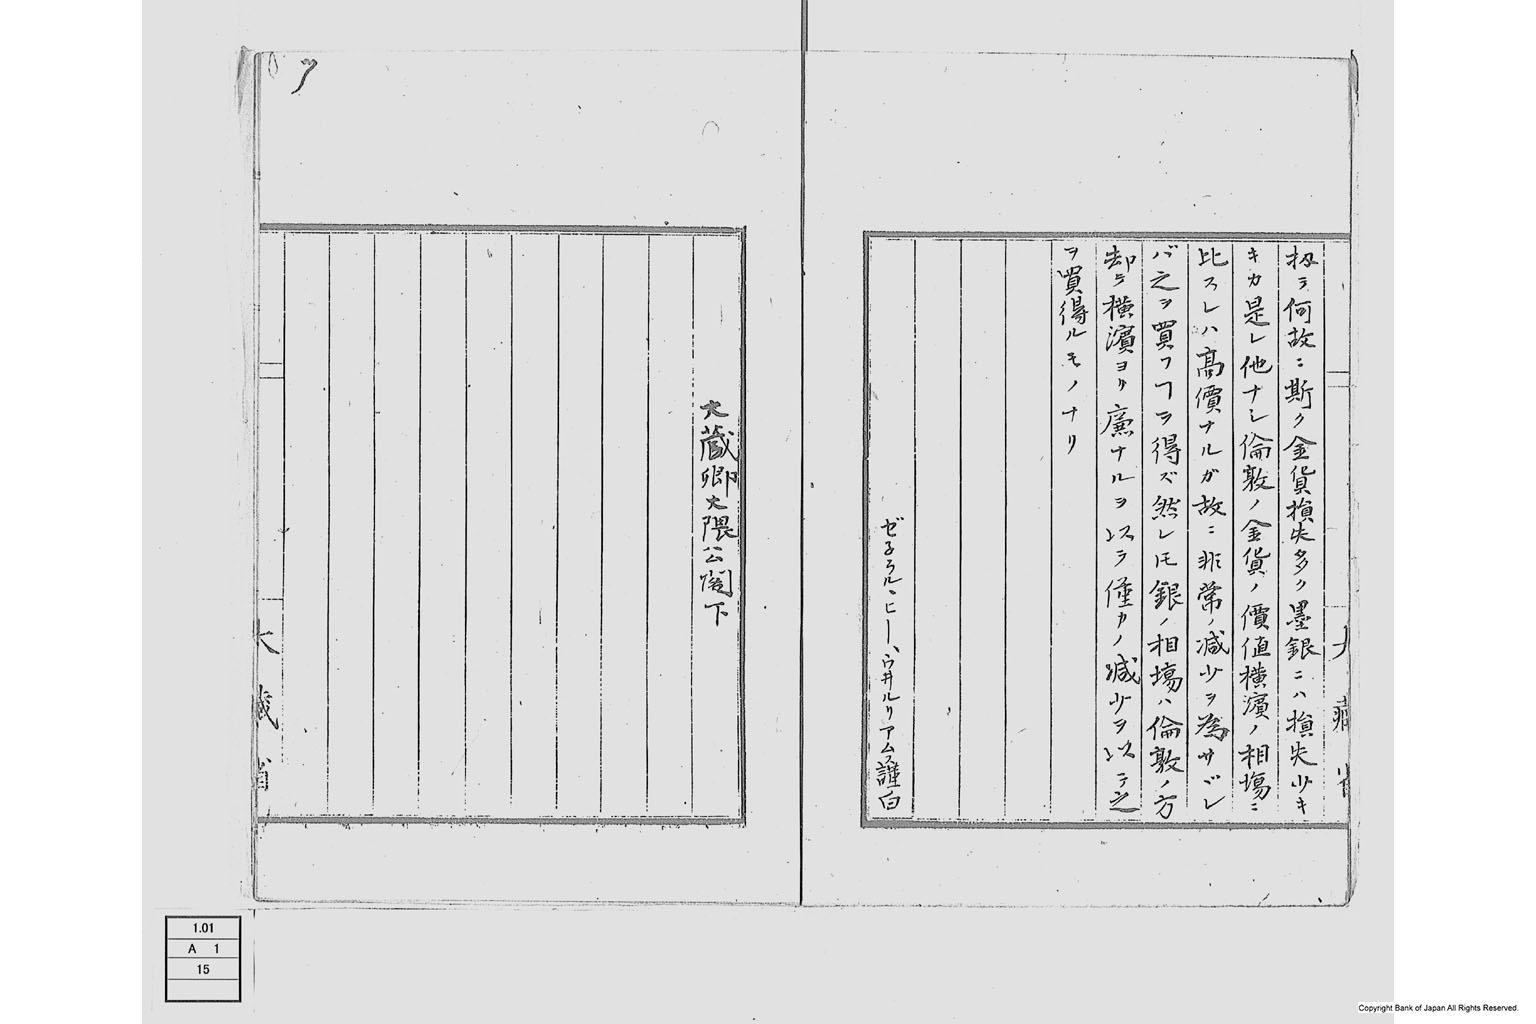 扨テ何故ニ斯ク金貨損失多ク墨銀ニハ損失少キ
キカ是レ他ナシ倫敦ノ金貨ノ價値横濱ノ相塲ニ
比スレハ高價ナルガ故ニ非常ノ減少ヲ為サヾレ
バ之ヲ買フヿヲ得ズ然レ𪜈銀ノ相塲ハ倫敦ノ方
却テ横濱ヨリ廉ナルヲ以テ僅カノ減少ヲ以テ之
ヲ買得ルモノナリ
ゼ子ラル、ヒー、ウ井ルリアムス謹白
大藏省
大蔵卿大隈公閣下
大藏省
1.01
A 1
15
Copyright Bank of Japan All Rights Reserved.